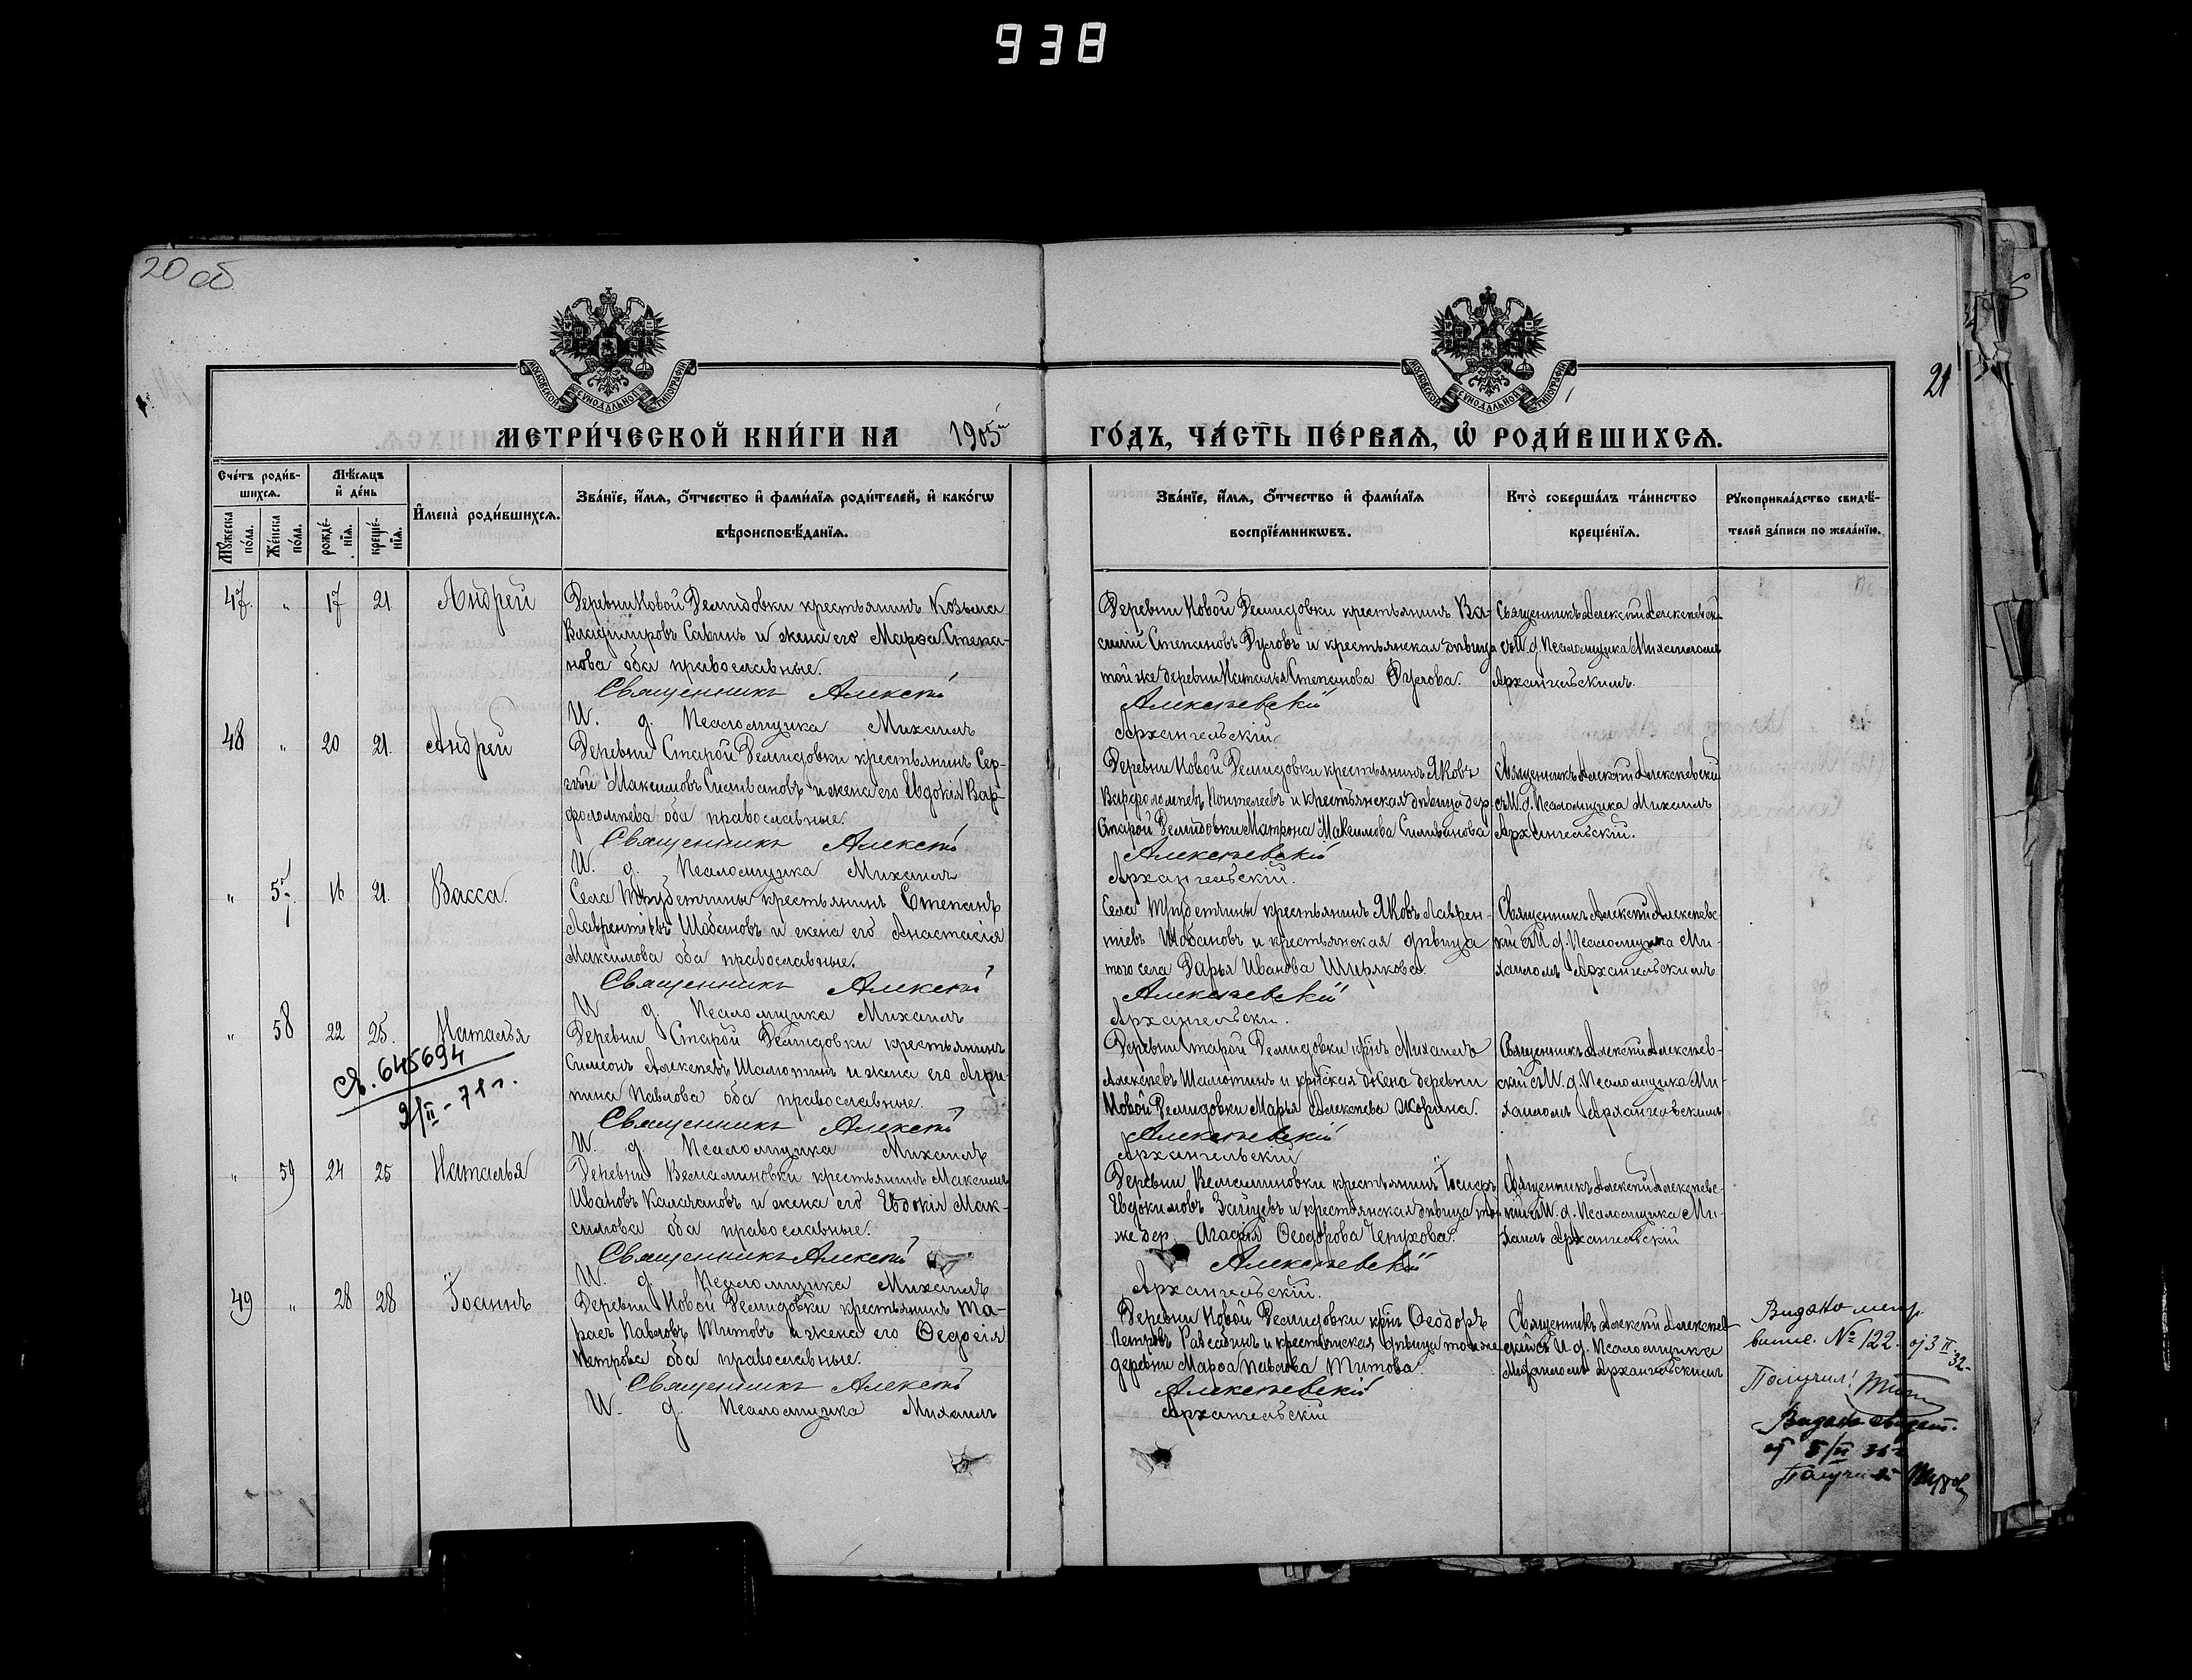 938
20 об
21
МОСКОВСКОЙ СѴНОДАЛЬНОЙ ТИПОГРАФІИ
МОСКОВСКОЙ СѴНОДАЛЬНОЙ ТИПОГРАФІИ
МЕТРИ́ЧЕСКОЙ КНИ́ГИ НА 1905й ГО́ДЪ, ЧА́СТЬ ПЕ́РВАѦ, Ѡ РОДИ́ВШИХСѦ.
Сче́тъ роди́в-
шихсѧ.
Мѣ́сѧцъ
и де́нь
Мꙋ́жеска
по́ла.
Же́нска
по́ла.
рожде́-
нїѧ.
креще́-
нїѧ.
И҆мена̀ роди́вшихсѧ.
Зва́нїе, и҆́мѧ, ѻ҆́тчество и҆ фами́лїѧ роди́телей, и҆ како́гѡ
вѣроисповѣ́данїѧ.
Зва́нїе, и҆́мѧ, ѻ҆́тчество и҆ фами́лїѧ
воспрїе́мникѡвъ.
Кто̀ соверша́лъ та́инство
креще́нїѧ.
Рꙋкоприкла́дство свидѣ́-
телей за́писи по жела́нїю.
47. " 17 21 Андрей
Деревни Новой Демидовки крестьянинъ Козьма
Владиміровъ Савинъ и жена его Марѳа Степа-
нова оба православные.
Священникъ Алексѣй
И. д. Псаломщика Михаилъ
Деревни Новой Демидовки крестьянинъ Ва-
силій Степановъ и крестьянская дѣвица
той же деревни Наталья Степанова
Алексѣевскій
Архангельскій
Священникъ Алексѣй Алексѣевскій
съ И. д. Псаломщика Михаиломъ
Архангельскимъ.
48 " 20 21. Андрей
Деревни Старой Демидовки крестьянинъ Сер-
гѣй Максимовъ Силивановъ и жена его Евдокія Вар-
фоломѣева оба православные.
Священникъ Алексѣй
И. д. Псаломщика Михаилъ
Деревни Новой Демидовки крестьянинъ Яковъ
Варфоломѣевъ и крестьянская дѣвица дер.
Старой Демидовки Матрона Максимова Силиванова
Алексѣевскій
Архангельскій.
Священникъ Алексѣй Алексѣевскій
съ И. д. Псаломщика Михаилъ
Архангельскій.
" 57. 16 21. Васса.
Села Трубетчины крестьянинъ Степанъ
Лаврентіевъ Шабановъ и жена его Анастасія
Максимова оба православные.
Священникъ Алексѣй
И д. Псаломщика Михаилъ
Села Трубетчины крестьянинъ Яковъ Лаврен-
тіевъ Шабановъ и крестьянская дѣвица
того села Дарья Иванова Ширякова.
Алексѣевскій
Архангельскій.
Священникъ Алексѣй Алексѣевс-
кій съ И д. Псаломщика Ми-
хаиломъ Архангельскимъ
" 58 22 25. Наталья
Св. 645694
2/II - 71 г.
Деревни Старой Демидовки крестьянинъ
Симеонъ Алексѣевъ Шалютинъ и жена его Агри-
пина Павлова оба православные.
Священникъ Алексѣй
И. д. Псаломщика Михаилъ
Деревни Старой Демидовки крнъ Михаилъ
Алексѣевъ Шалютинъ и жена деревни
Новой Демидовки Марья Алексѣева Жорина.
Алексѣевскій
Архангельскій
Священникъ Алексѣй Алексѣев-
скій съ И. д. Псаломщика Ми-
хаиломъ Архангельскимъ
" 59 24 25 Наталья
Деревни Вельяминовки крестьянинъ Максимъ
Ивановъ Калачановъ и жена его Евдокія Мак-
симова оба православные.
Священникъ Алексѣй
И. д. Псаломщика Михаилъ
Деревни Вельяминовки крестьянинъ Іосифъ
Евдокимовъ Зайцевъ и крестьянская дѣвица той
же дер. Агафія Ѳеодорова Чепухова.
Алексѣевскій
Архангельскій.
Священникъ Алексѣй Алексѣевс-
кій съ И. д. Псаломщика Ми-
хаилъ Архангельскій
49 " 28 28 Іоаннъ
Деревни Новой Демидовки крестьянинъ Та-
расъ Павловъ Титовъ и жена его Ѳедосія
Петрова оба православные.
Священникъ Алексѣй
И. д. Псаломщика Михаилъ
Деревни Новой Демидовки крнъ Ѳеодоръ
Петровъ и крестьянская дѣвица той же
деревни Марѳа Павлова Титова.
Алексѣевскій
Архангельскій
Священникъ Алексѣй Алексѣев-
скій съ И д. Псаломщика
Михаиломъ Архангельскимъ
Видано метр.
випис. № 122. 3 II 32
Получил:
Видано свидет.
Получил Титов